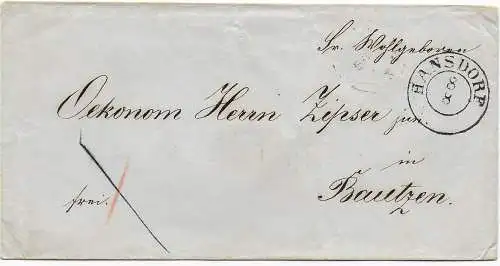 Sr. Wohlgeboren
HANSDORF
8 8
Oekonom Herrn Zipser jun.
in
frei.
Bautzen.